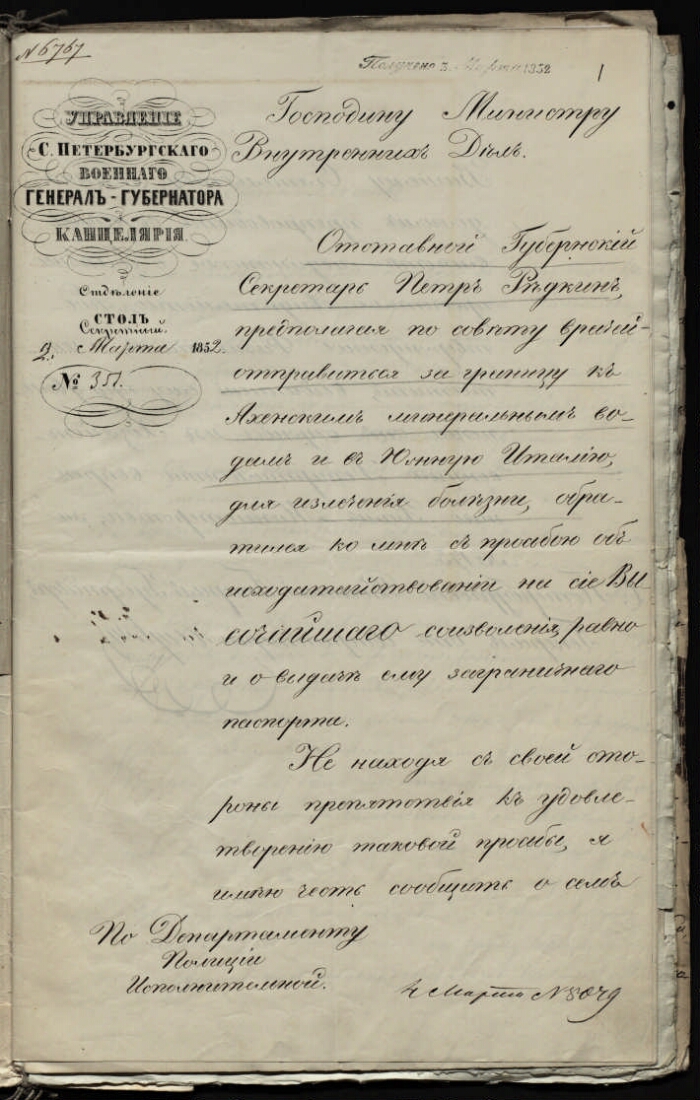 N 6767
Получено 3. Марта 1852
1
УПРАВЛЕНІЕ
С. ПЕТЕРБУРГСКАГО
ВОЕННАГО
ГЕНЕРАЛЪ-ГУБЕРНАТОРА
КАНЦЕЛЯРІЯ.
Отдѣленіе
СТОЛЪ
Секретный.
2. Марта 1852.
№ 351.
Господину Министру
Внутреннихъ Дѣлъ.
Отставной Губернскій
Секретарь Петръ Рѣдкинъ,
предполагая по совѣту врачей
отправиться за границу къ
Ахенскимъ минеральнымъ во-
дамъ и въ Южную Италію,
для излеченія болѣзни, обра-
тился ко мнѣ съ просьбою объ
исходатайствованіи на сіе ВЫ
СОЧАЙШАГО соизволенія, равно
и о выдачѣ ему заграничнаго
паспорта.
Не находя съ своей сто-
роны препятствія къ удовле-
творенію таковой просьбы, я
имѣю честь сообщить о семъ
По Департаменту
Полиціи
Исполнительной.
4 Марта N 8049